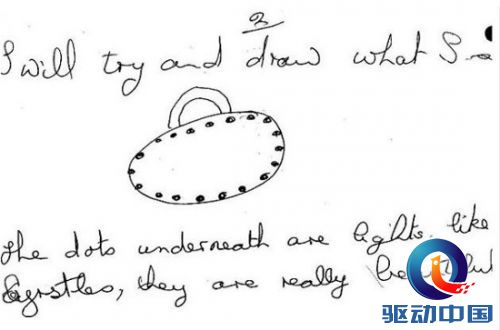 2
I will try and draw what I
the dots underneath are lights like
, they are really
驱动中国